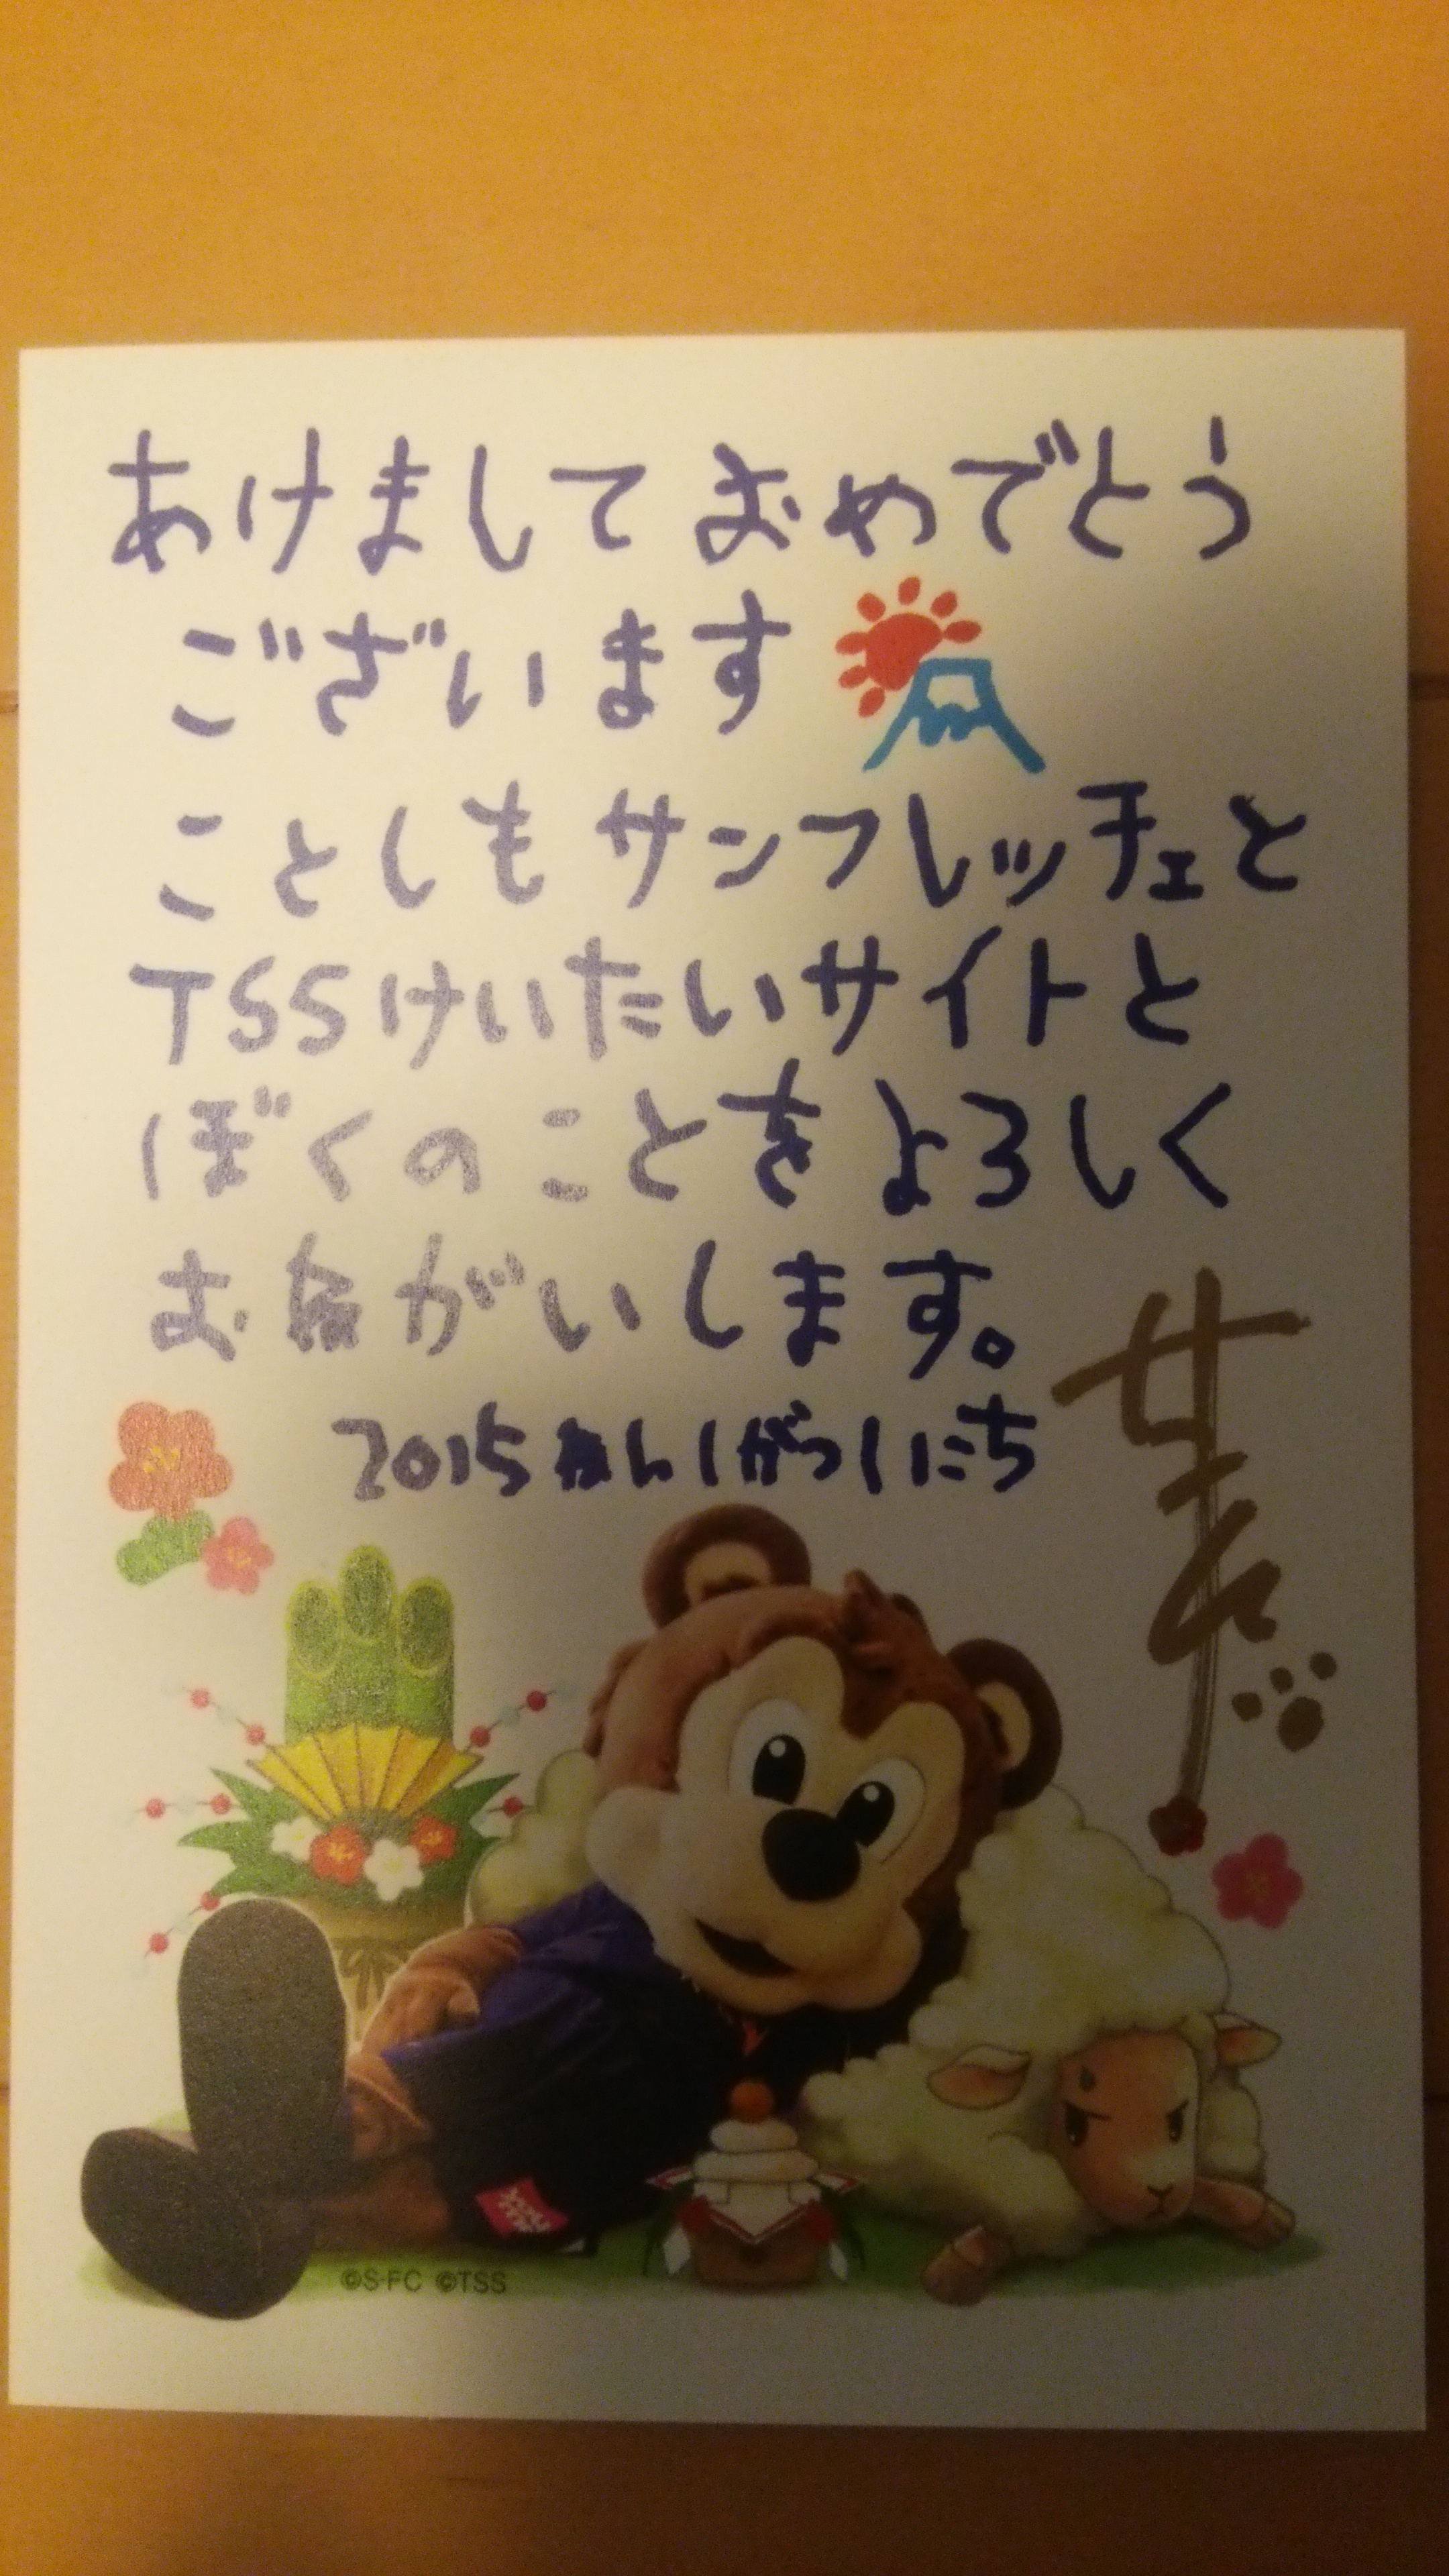 あけましておめでとう
ございます
ことしもサンフレッチェと
TSSけいたいサイトと
ぼくのことをよろしく
おねがいします。
2015ねん1がつ1にち
©S・FC ©TSS